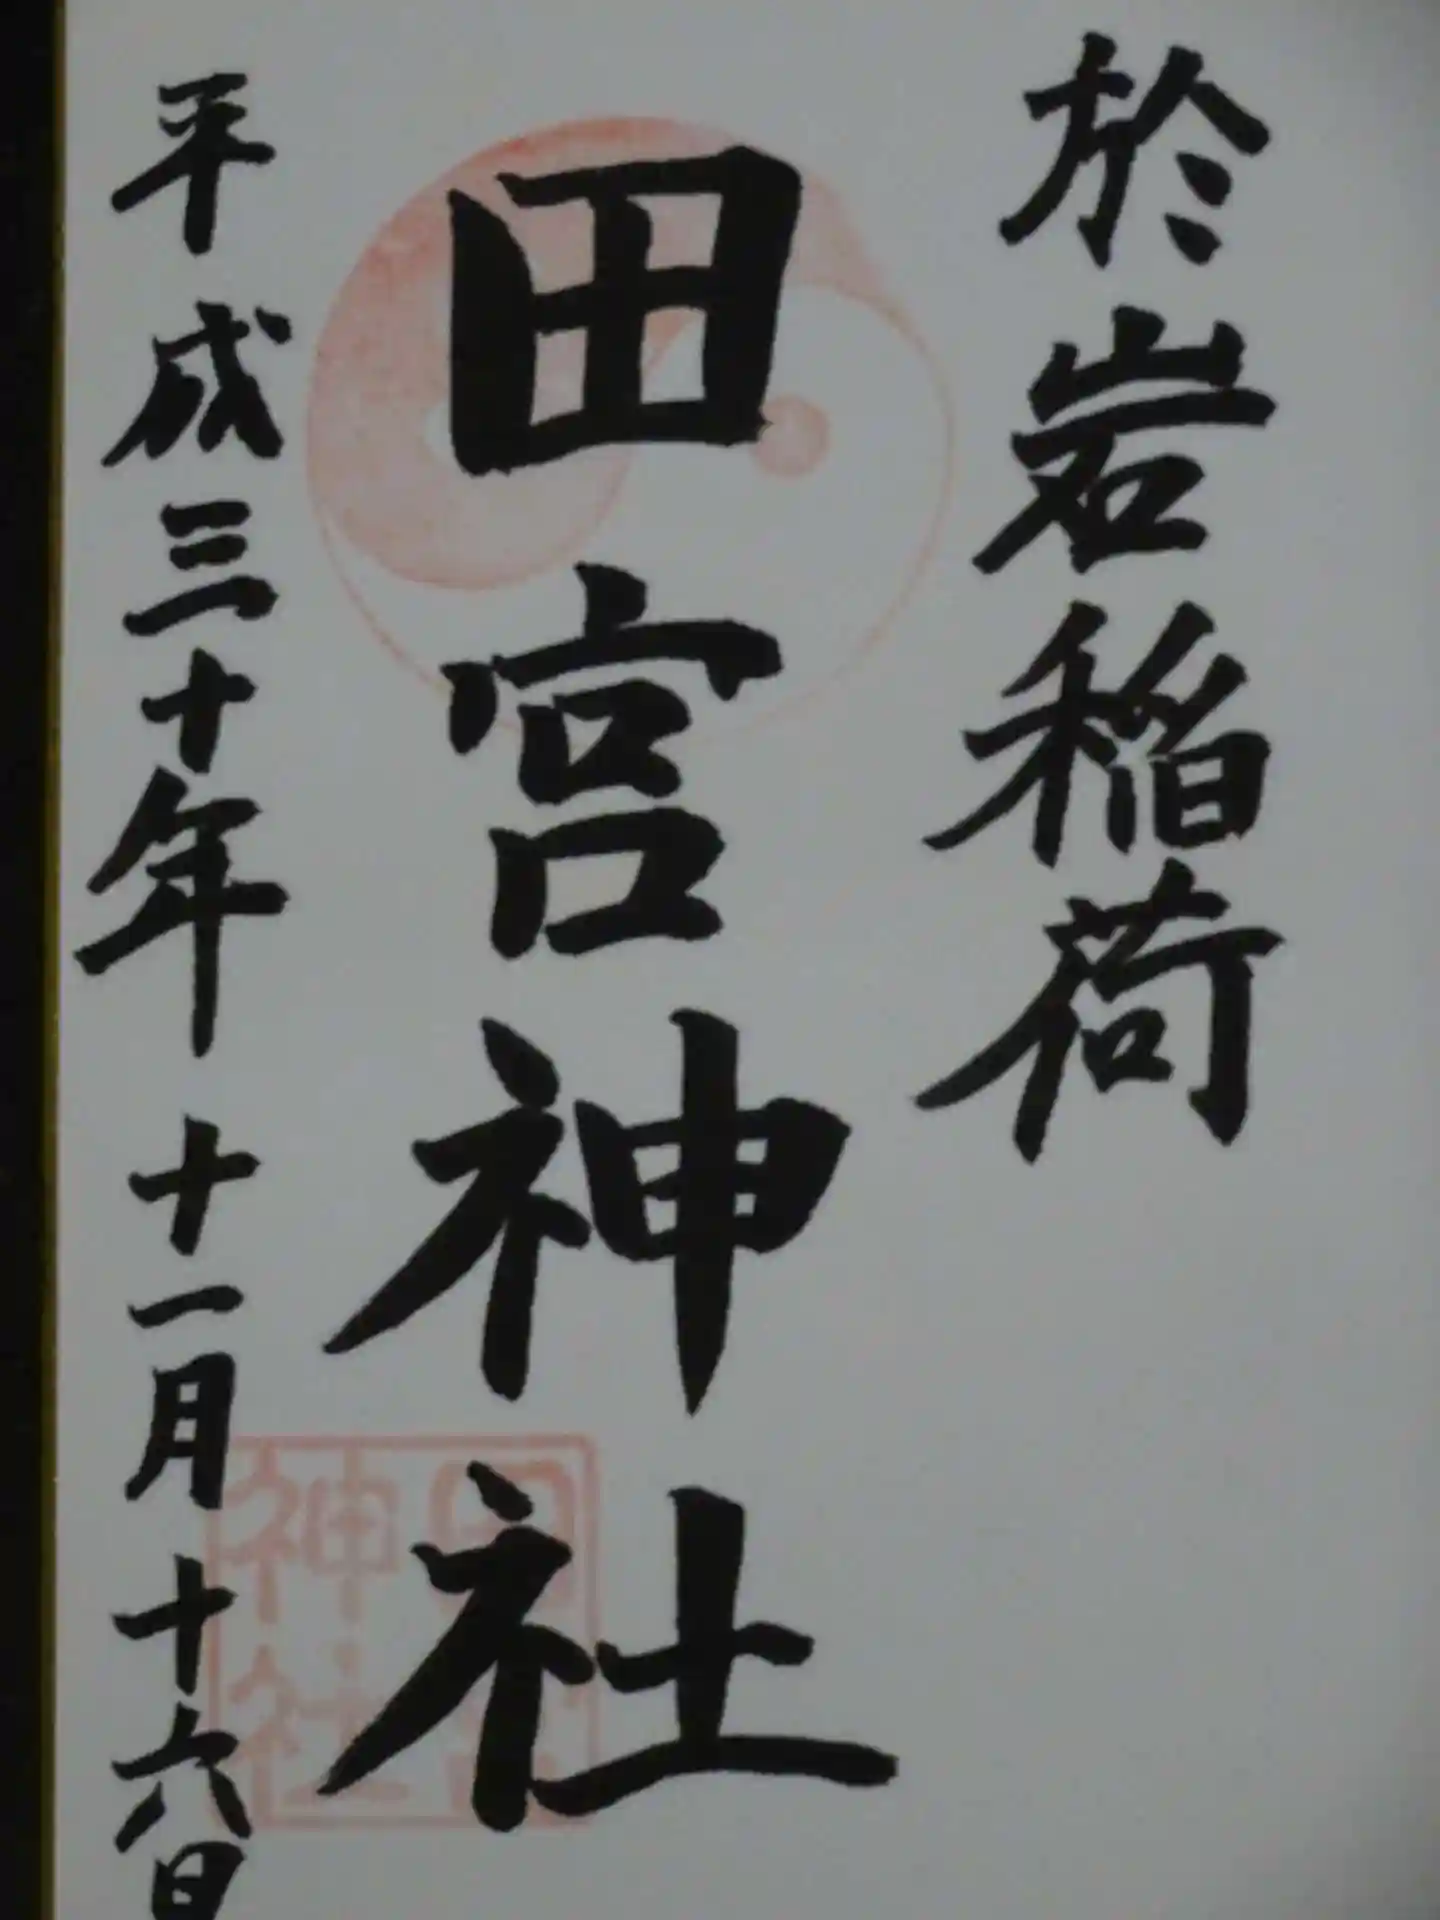 於岩稲荷
田宮神社
平成三十年 十一月 十六日
田宮
神社